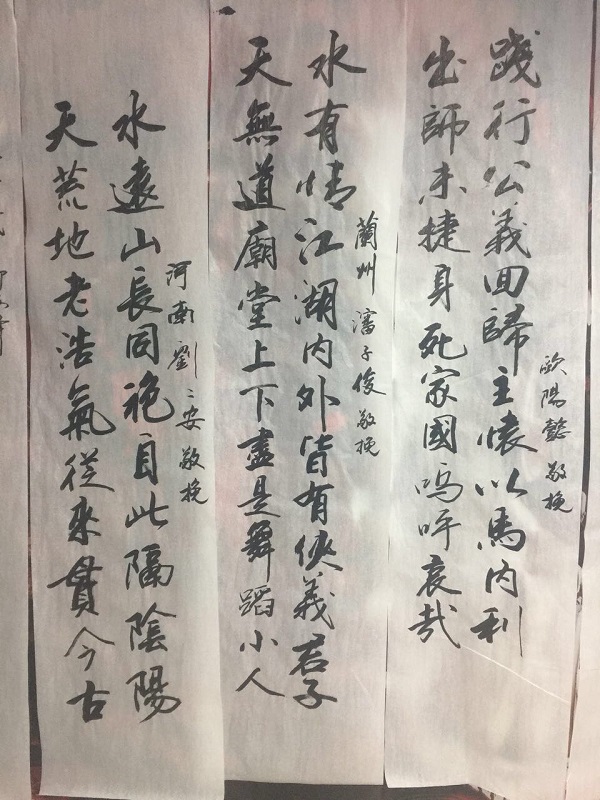 践行公義回歸主懷以馬內利
出師未捷身死家國嗚呼哀哉
歐陽懿 敬挽
水有情江湖内外皆有俠義君子
天無道廟堂上下盡是舞蹈小人
蘭州 瀋子俊 敬挽
水遠山長同袍自此隔陰陽
天荒地老浩氣從來貫今古
河南 劉二安 敬挽